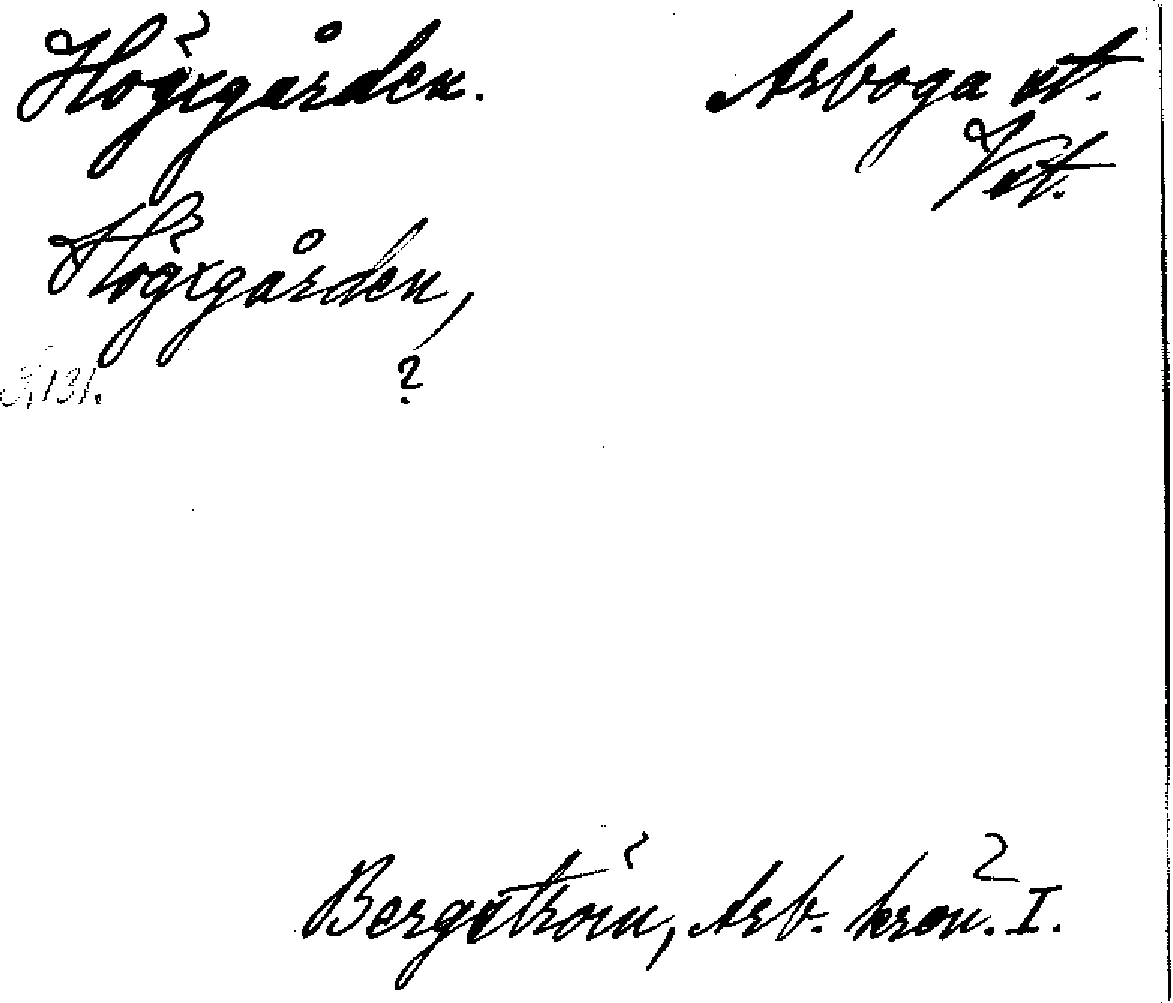 Högxgården. Arboga st.
Vst.
Högxgården,
?
Bergström, Arb. krön. I.